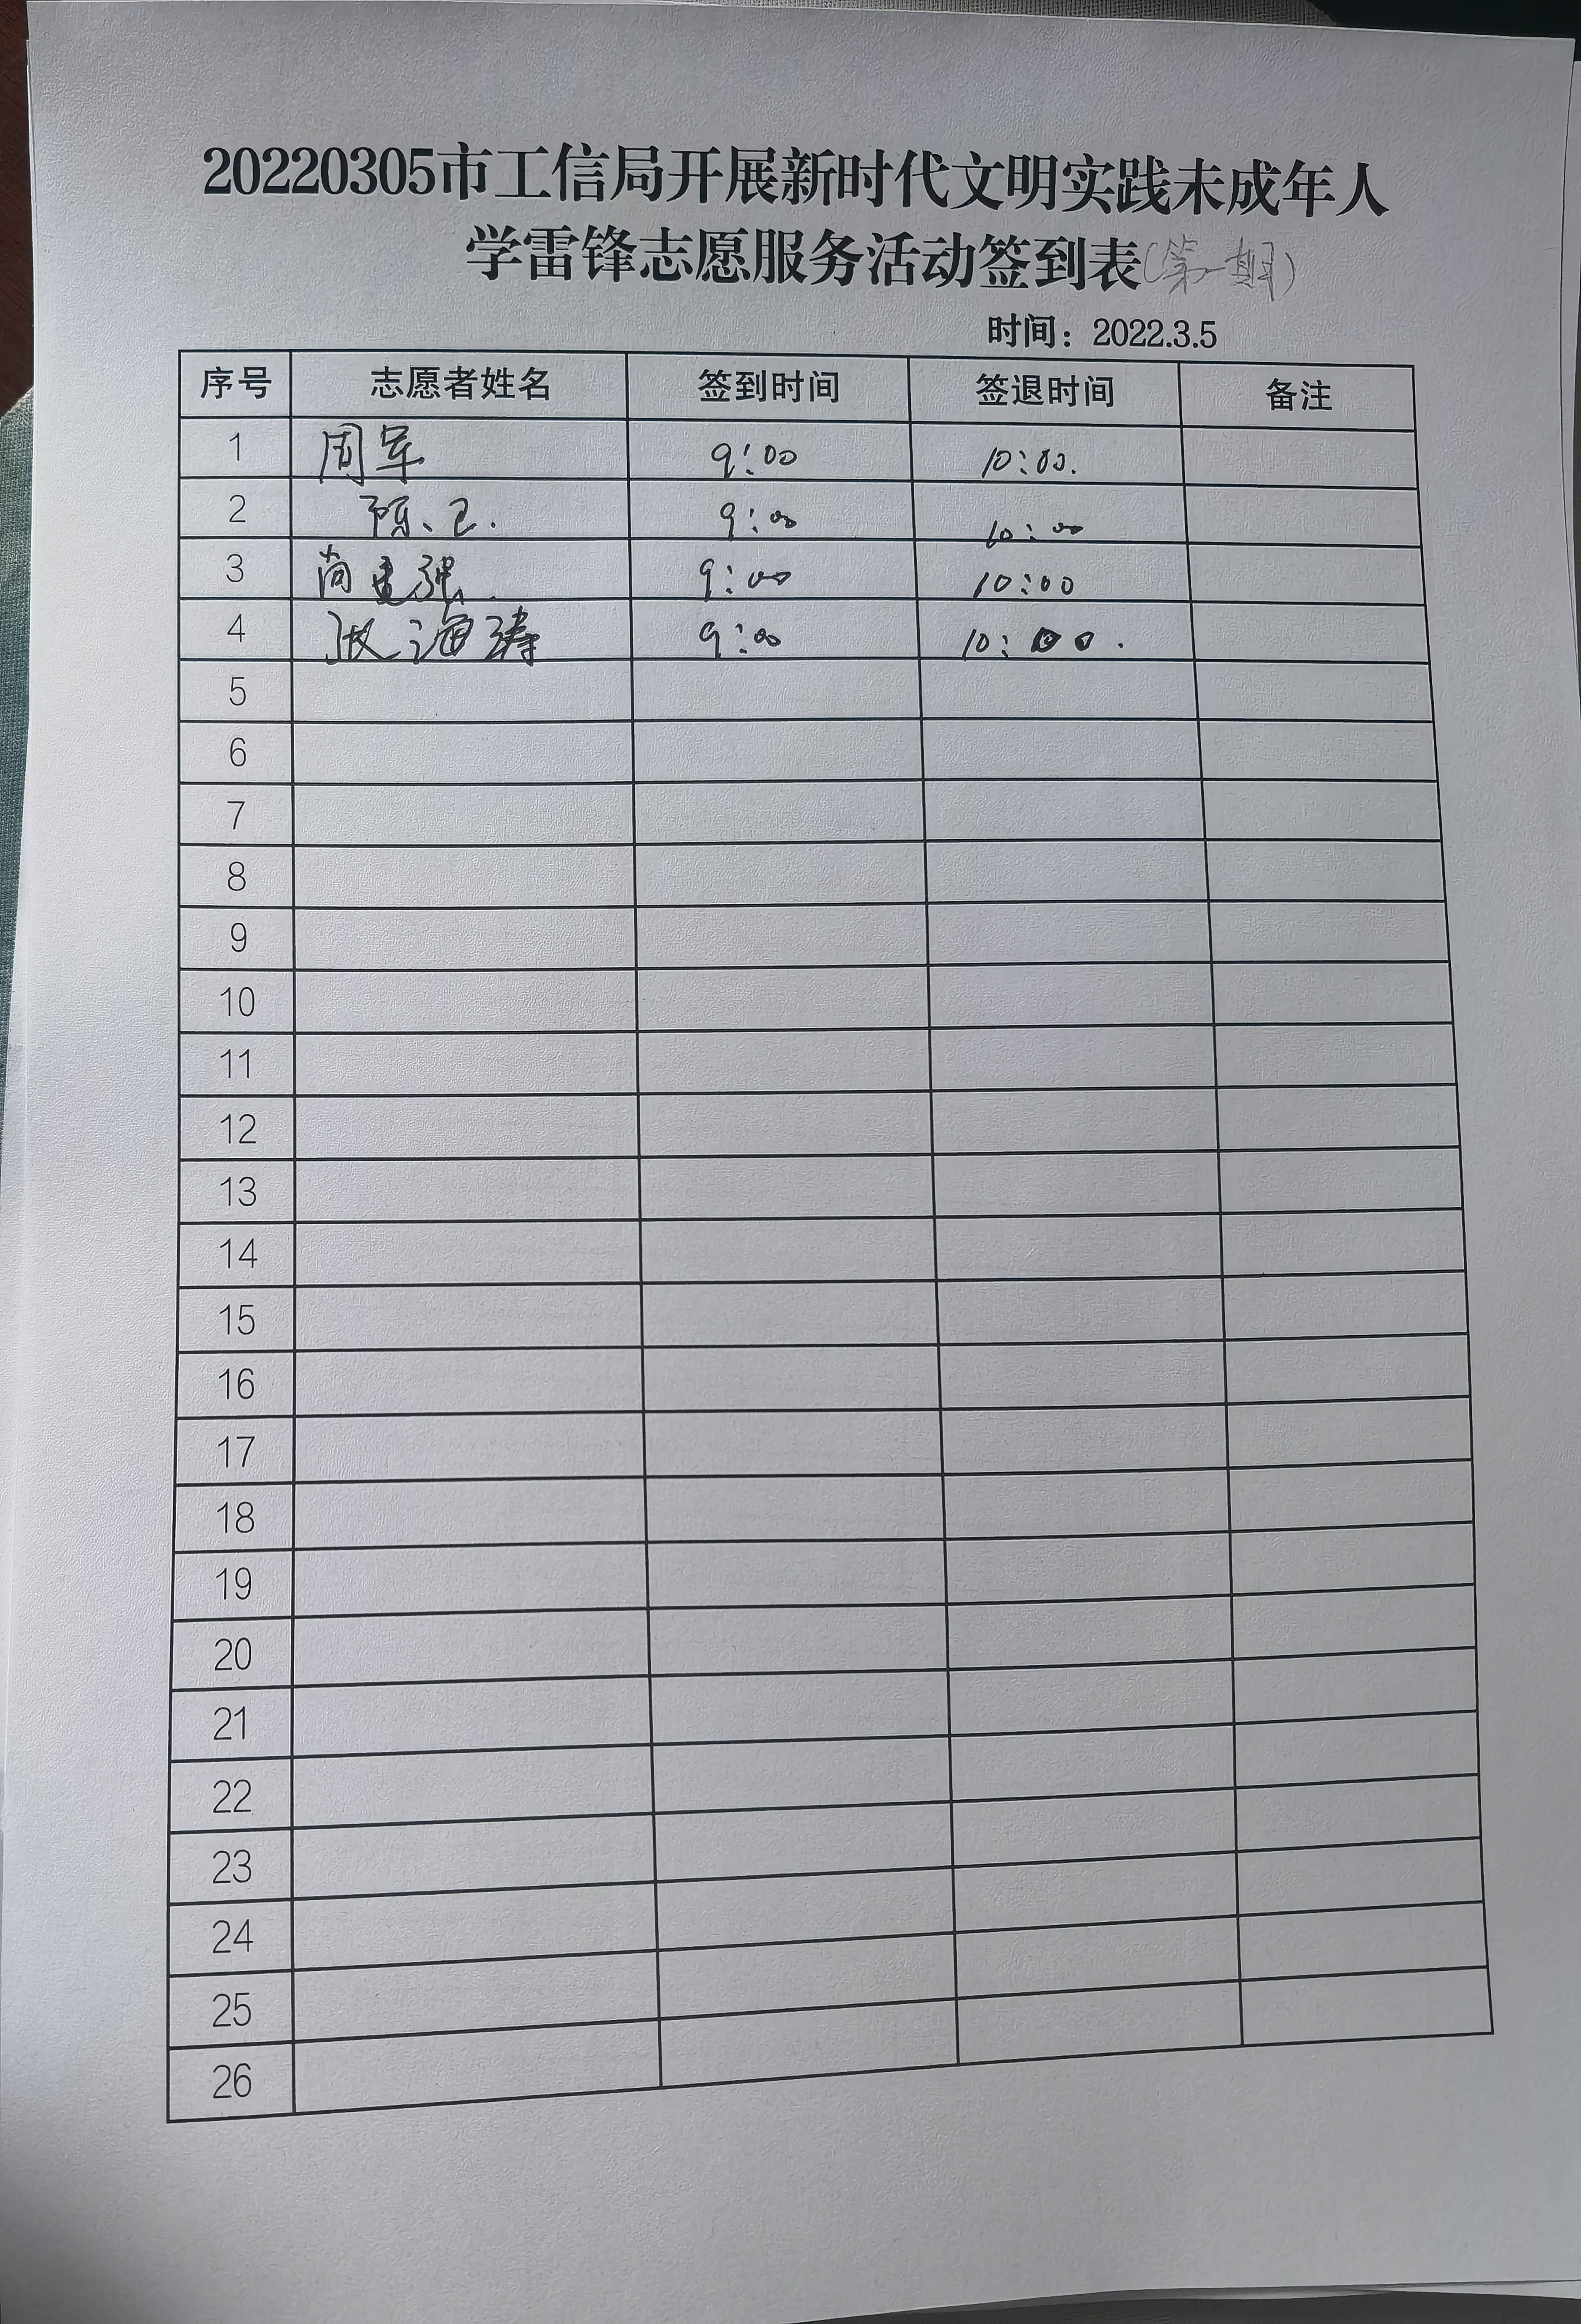 20220305市工信局开展新时代文明实践未成年人
学雷锋志愿服务活动签到表(第一期)
时间：2022.3.5
序号 志愿者姓名 签到时间 签退时间 备注
1 周军 9:00 10:00.
2 9:00 10:00
3 9:00 10:00
4 张海涛 9:00 10:00.
5
6
7
8
9
10
11
12
13
14
15
16
17
18
19
20
21
22
23
24
25
26